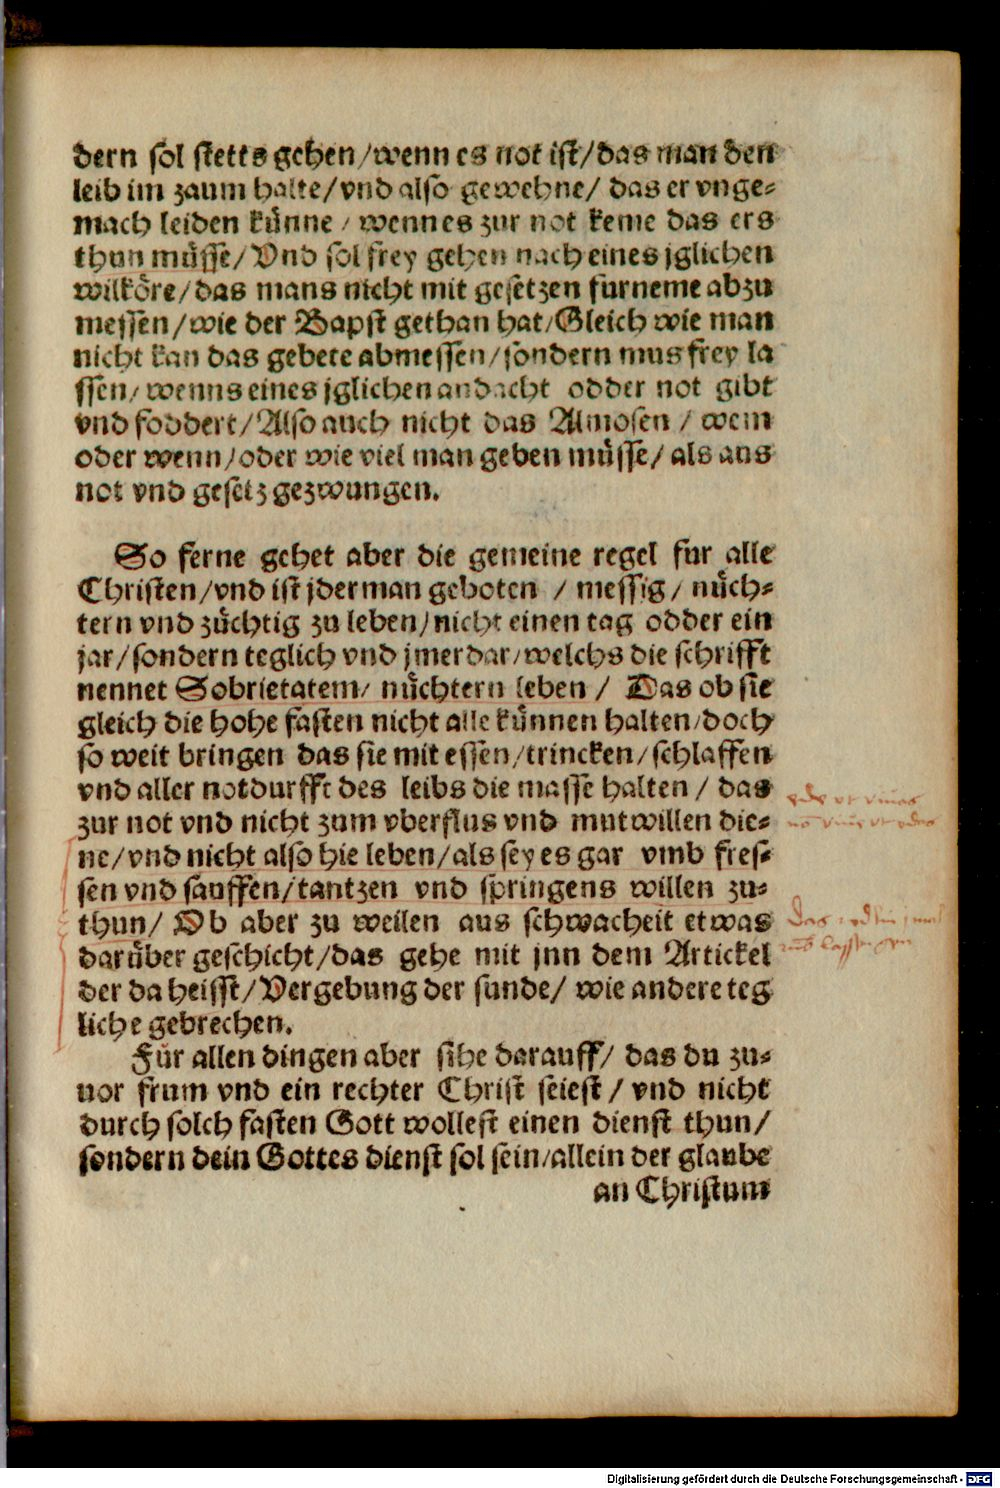 dern sol stetts gehen/wenn es not ist/das man den
leib im zaum halte/vnd also gewehne/ das er vnge⸗
mach leiden künne / wenn es zur not keme das ers
thun müsse/ Vnd sol frey gehen nach eines jglichen
wilköre/das mans nicht mit gesetzen furneme abzu
messen/wie der Bapst gethan hat/Gleich wie man
nicht kan das gebete abmessen/sondern mus frey la
ssen/wenns eines jglichen andacht odder not gibt
vnd foddert/Also auch nicht das Almosen / wem
oder wenn/oder wie viel man geben müsse/ als aus
not vnd gesetz gezwungen.
So ferne gehet aber die gemeine regel fur alle
Christen/vnd ist jderman geboten / messig/ nüch⸗
tern vnd züchtig zu leben/nicht einen tag odder ein
jar/sondern teglich vnd jmerdar/welchs die schrifft
nennet Sobrietatem/ nüchtern leben / Das ob sie
gleich die hohe fasten nicht alle künnen halten/doch
so weit bringen das sie mit essen/trincken/schlaffen
vnd aller notdurfft des leibs die masse halten / das
zur not vnd nicht zum vberflus vnd mutwillen die⸗
ne/vnd nicht also hie leben/als sey es gar vmb fres⸗
sen vnd sauffen/tantzen vnd springens willen zu⸗
thun/ Ob aber zu weilen aus schwacheit etwas
darüber geschicht/das gehe mit jnn dem Artickel
der da heisst/Vergebung der sunde/ wie andere teg
liche gebrechen.
Für allen dingen aber sihe darauff/ das du zu⸗
uor frum vnd ein rechter Christ seiest / vnd nicht
durch solch fasten Gott wollest einen dienst thun/
sondern dein Gottes dienst sol sein/allein der glaube
an Christum
Digitalisierung gefördert durch die Deutsche Forschungsgemeinschaft - DFG